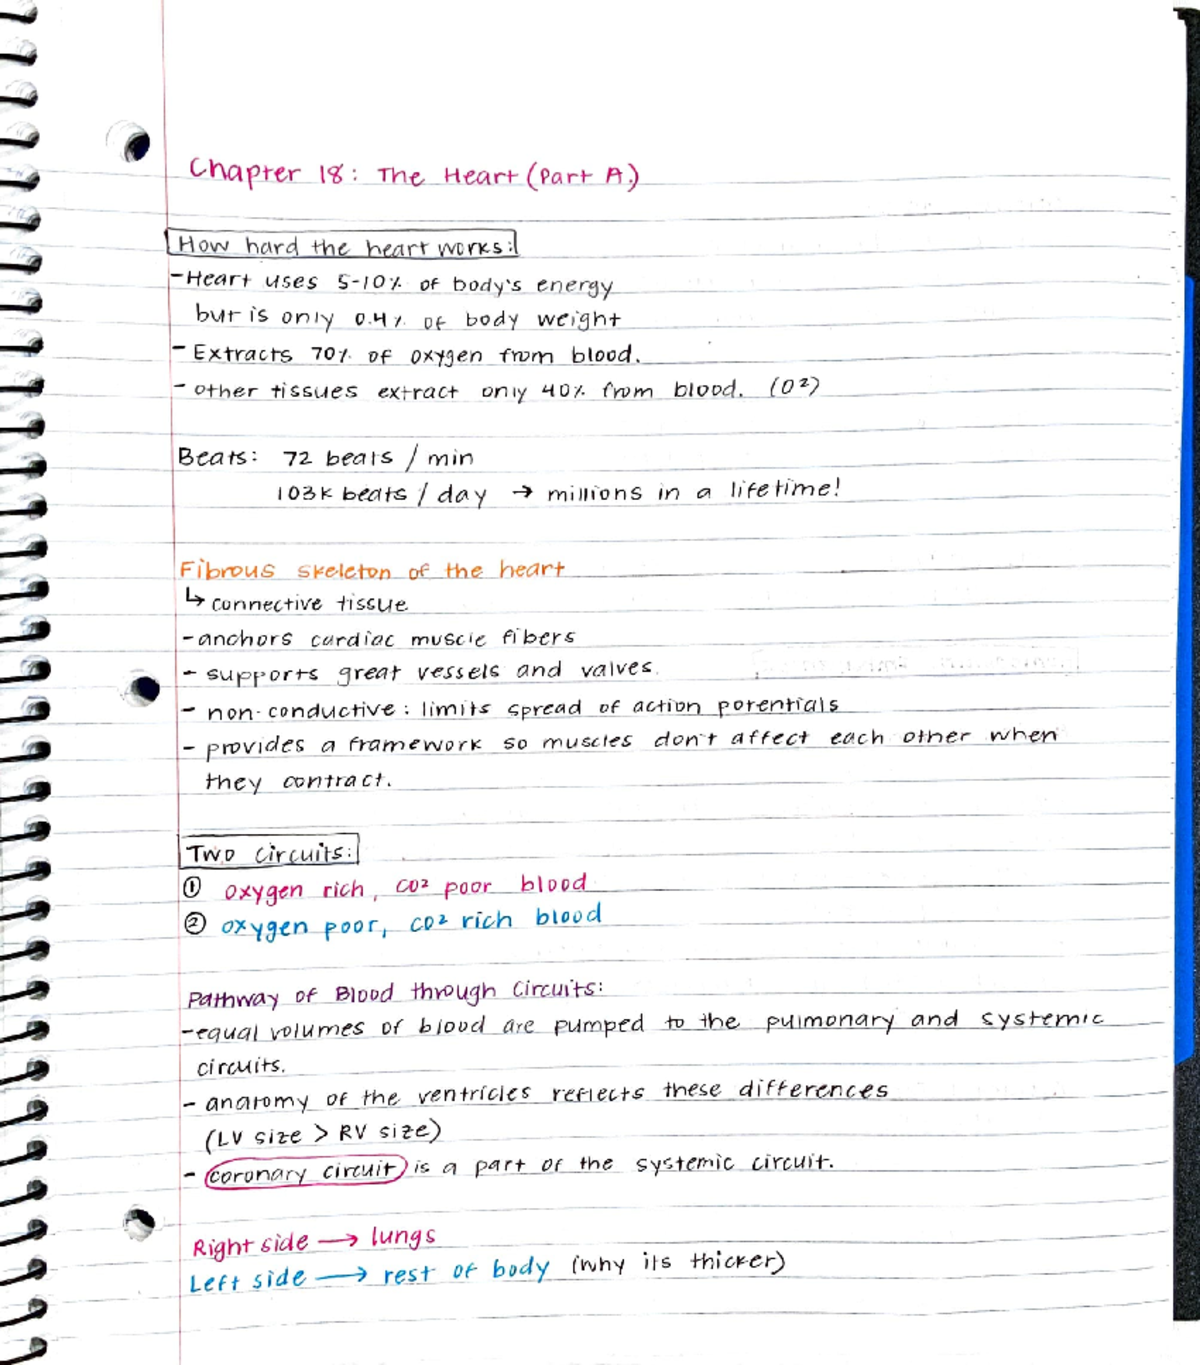 Chapter 18: The Heart (Part A.)
How hard the heart works:
-Heart uses 5-10% of body's energy
but is only 0.4% of body weight
- Extracts 70% of oxygen from blood.
- other tissues extract only 40% from blood. (O²)
Beats: 72 beats / min
103K beats / day → millions in a lifetime!
Fibrous skeleton of the heart
↳ connective tissue
- anchors cardiac muscle fibers
- supports great vessels and valves.
- non-conductive: limits spread of action potentials
- provides a framework so muscles don't affect each other when
they contract.
Two circuits:
① oxygen rich, CO² poor blood
② oxygen poor, CO² rich blood
Pathway of Blood through Circuits:
-equal volumes of blood are pumped to the pulmonary and systemic
circuits.
- anatomy of the ventricles reflects these differences
(LV size > RV size)
- coronary circuit is a part of the systemic circuit.
Right side → lungs
Left side → rest of body (why its thicker)